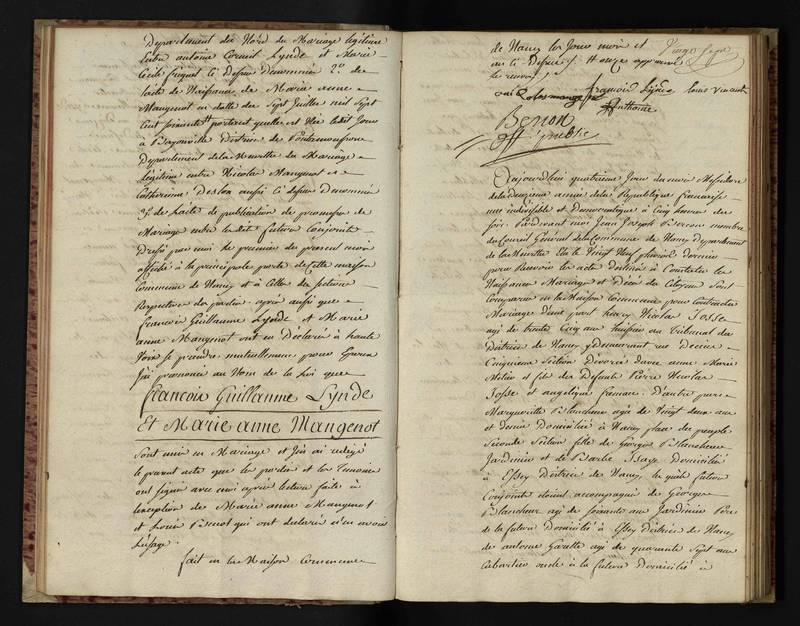 Département du Nord du Mariage legitime
Entre antoine Lynde et Marie
Cecile ci dessus Denommée 2.o de
lacte de Naissance de Marie anne
Mangenot en datte du Sept Juillet mil Sept
Cent Soixante portant quelle est Née ledit Jour
à Bayonville District de Pontamousson
Département de la Meurthe du Mariage
Légitime entre Nicolas Mangenot et
Catherine aussi ci dessus Denommée
3.o de Lacte de publication de promesse de
Mariage entre lesdits futurs Conjoints
Dressé par moi le premier du present mois
affiché à la principale porte de Cette maison
Commune de Nancy et à Celles des
Respectives des parties après aussi que
francois Guillaume Lynde et Marie
anne Mangenot ont Déclaré à haute
Voix se prendre mutuellement pour Epoux
J'ai prononcé au Nom de la loi que
francois Guillaume Lynde
Et Marie anne Mangenot
Sont unis en Mariage et J'en ai redigé
le present acte que les parties et les temoins
ont signé avec moi après lecture faite à
lexception de Marie anne Mangenot
et Louis qui ont declaré n'en avoir
L'usage
fait en la Maison Commune
de Nancy les Jour mois et
an ci Dessus approuvé
le renvoi
francois Lynde Louis Vincent
Benon
off public
Aujourdhui quatrieme Jour du mois Messidore
de la deuxieme année de la République francaise
une indivisible et Democratique à Cinq heures du
soir Pardevant moi Jean Joseph Benon membre
du Conseil Général de la Commune de Nancy Département
de la Meurthe Elu le Vingt Neuf pluviose dernier
pour Recevoir les acte Destinés à Constater les
Naissances Mariages et Décès des Citoyens Sont
Comparus en la Maison Commune pour Contracter
Mariage d'une part henry Nicolas Josse
agé de trente Cinq ans huissier au Tribunal du
District de Nancy y Demeurant rue
Cinquieme Section Divorcé davec anne Marie
et fils des Défunts Pierre Nicolas
Josse et angelique D'autre part
Marguerite Blancheur agée de Vingt deux ans
et demie Domiciliée à Nancy place du peuple
Seconde Section fille de Georges Blancheur
Jardinier et de Barbe Domiciliés
à Essey District de Nancy lesquels futurs
Conjoints étoient accompagnés de Georges
Blancheur agé de Soixante ans Jardinier Pere
de la future Domicilié à Essey District de Nancy
de antoine agé de quarante Sept ans
Cabaretier oncle à la future Domicilié à